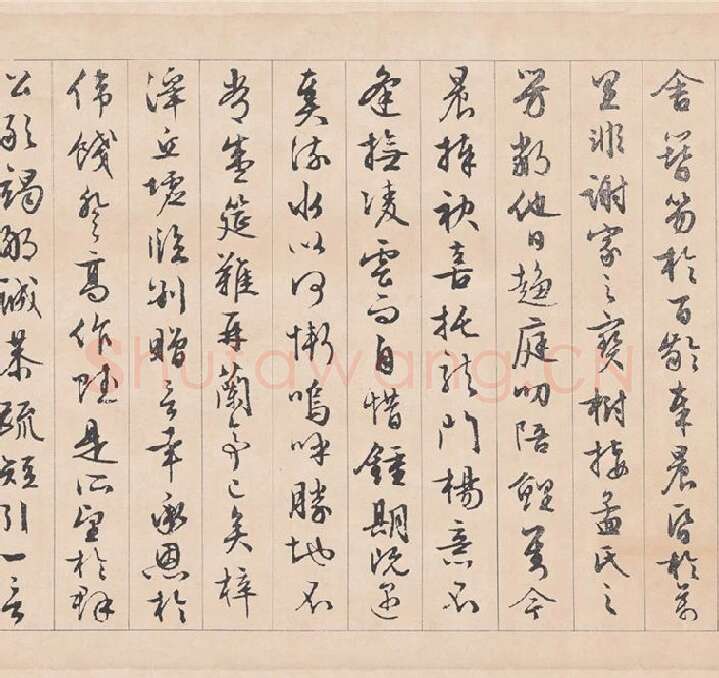 舍簪笏於百齡奉晨昏於萬
里非謝家之寶樹接孟氏之
芳鄰他日趨庭叨陪鯉對今
晨捧袂喜托龍門楊意不
逢撫凌雲而自惜鍾期既遇
奏流水以何慚嗚呼勝地不
常盛筵難再蘭亭已矣梓
澤丘墟臨別贈言幸承恩於
偉餞登高作賦是所望於群
公敢竭鄙誠恭疏短引一言
Shufawang.CN